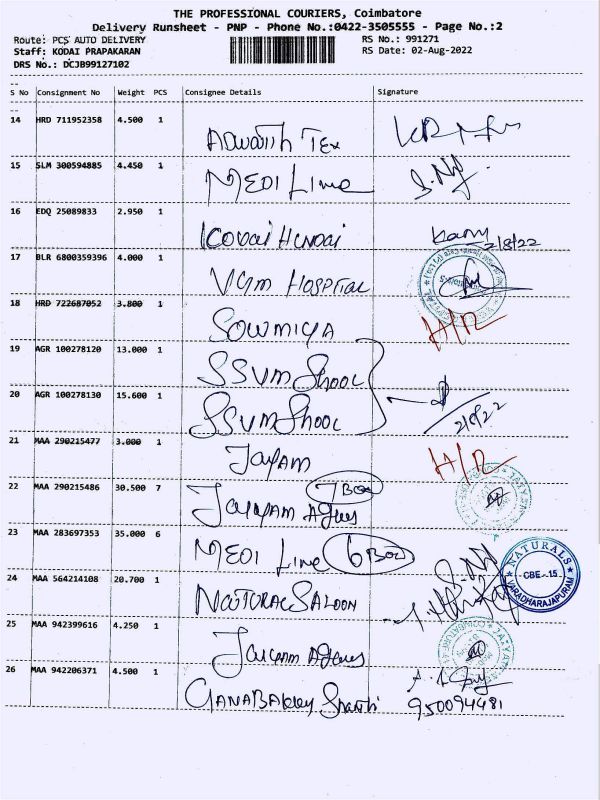 THE PROFESSIONAL COURIERS, Coimbatore
Delivery Runsheet - PNP - Phone No.:0422-3505555 - Page No.:2
Route: PCS AUTO DELIVERY RS No.: 991271
Staff: KODAI PRAPAKARAN RS Date: 02-Aug-2022
DRS No.: DCJB99127102
S No Consignment No Weight PCS Consignee Details Signature
14 HRD 711952358 4.500 1
Adwaith Tex
15 SLM 300594885 4.450 1
MEDI Line
16 EDQ 25089833 2.950 1
Kovai Hundai 2/8/22
17 BLR 6800359396 4.000 1
VGM HOSPITAL
18 HRD 722687052 3.800 1
SOWMIYA H/R
19 AGR 100278120 13.000 1
SSVM Shool
20 AGR 100278130 15.600 1
SSVM Shool 2/8/22
21 MAA 290215477 3.000 1
Jayam H/R
22 MAA 290215486 30.500 7
7 Box
Jayam
23 MAA 283697353 35.000 6
MEDI Line 6 Box
NATURALS
CBE-15
VARADHARAJAPURAM
24 MAA 564214108 20.700 1
Natural SALOON
25 MAA 942399616 4.250 1
26 MAA 942206371 4.500 1
950094481